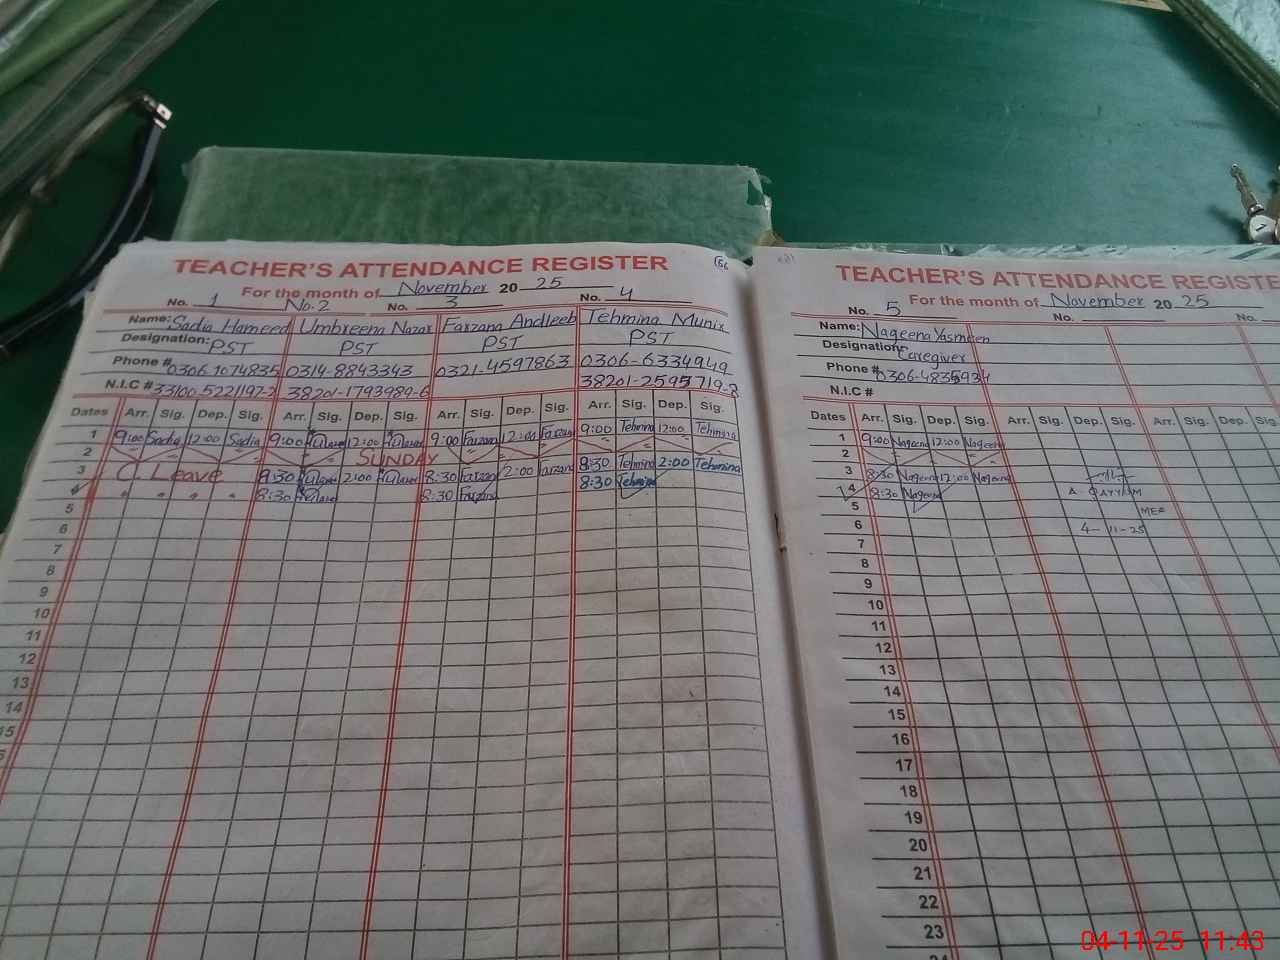 TEACHER'S ATTENDANCE REGISTER
For the month of November 20 25
No. 1 No. 2 No. 3 No. 4
Name: Sadia Hameed Umbreen Nazar Farzana Andleeb Tehmina Munir
Designation: PST PST PST PST
Phone # 0306-1074835 0314-8843343 0321-4597863 0306-6334949
N.I.C # 33100-5221197-2 38201-1793989-6 38201-2595719-8
Dates Arr. Sig. Dep. Sig. Arr. Sig. Dep. Sig. Arr. Sig. Dep. Sig. Arr. Sig. Dep. Sig.
1 9:00 Sadia 12:00 Sadia 9:00 12:00 9:00 Farzana 12:00 Farzana 9:00 Tehmina 12:00 Tehmina
2 SUNDAY
3 C. Leave 8:30 2:00 8:30 Farzana 2:00 Farzana 8:30 Tehmina 2:00 Tehmina
4 " " " " 8:30 8:30 Farzana 8:30 Tehmina
5
6
7
8
9
10
11
12
13
14
15
TEACHER'S ATTENDANCE REGISTE
For the month of November 20 25
No. 5 No. No.
Name: Nageena Yasmeen
Designation: Caregiver
Phone # 0306-4835934
N.I.C #
Dates Arr. Sig. Dep. Sig. Arr. Sig. Dep. Sig. Arr. Sig. Dep. Sig. Arr. Sig. Dep.
1 9:00 Nageena 12:00 Nageena
2
3 8:30 Nageena 12:00 Nageena
4 8:30 Nageena A. QAYYUM
5 MEA
6 4-11-25
7
8
9
10
11
12
13
14
15
16
17
18
19
20
21
22
23
04-11-25 11:43